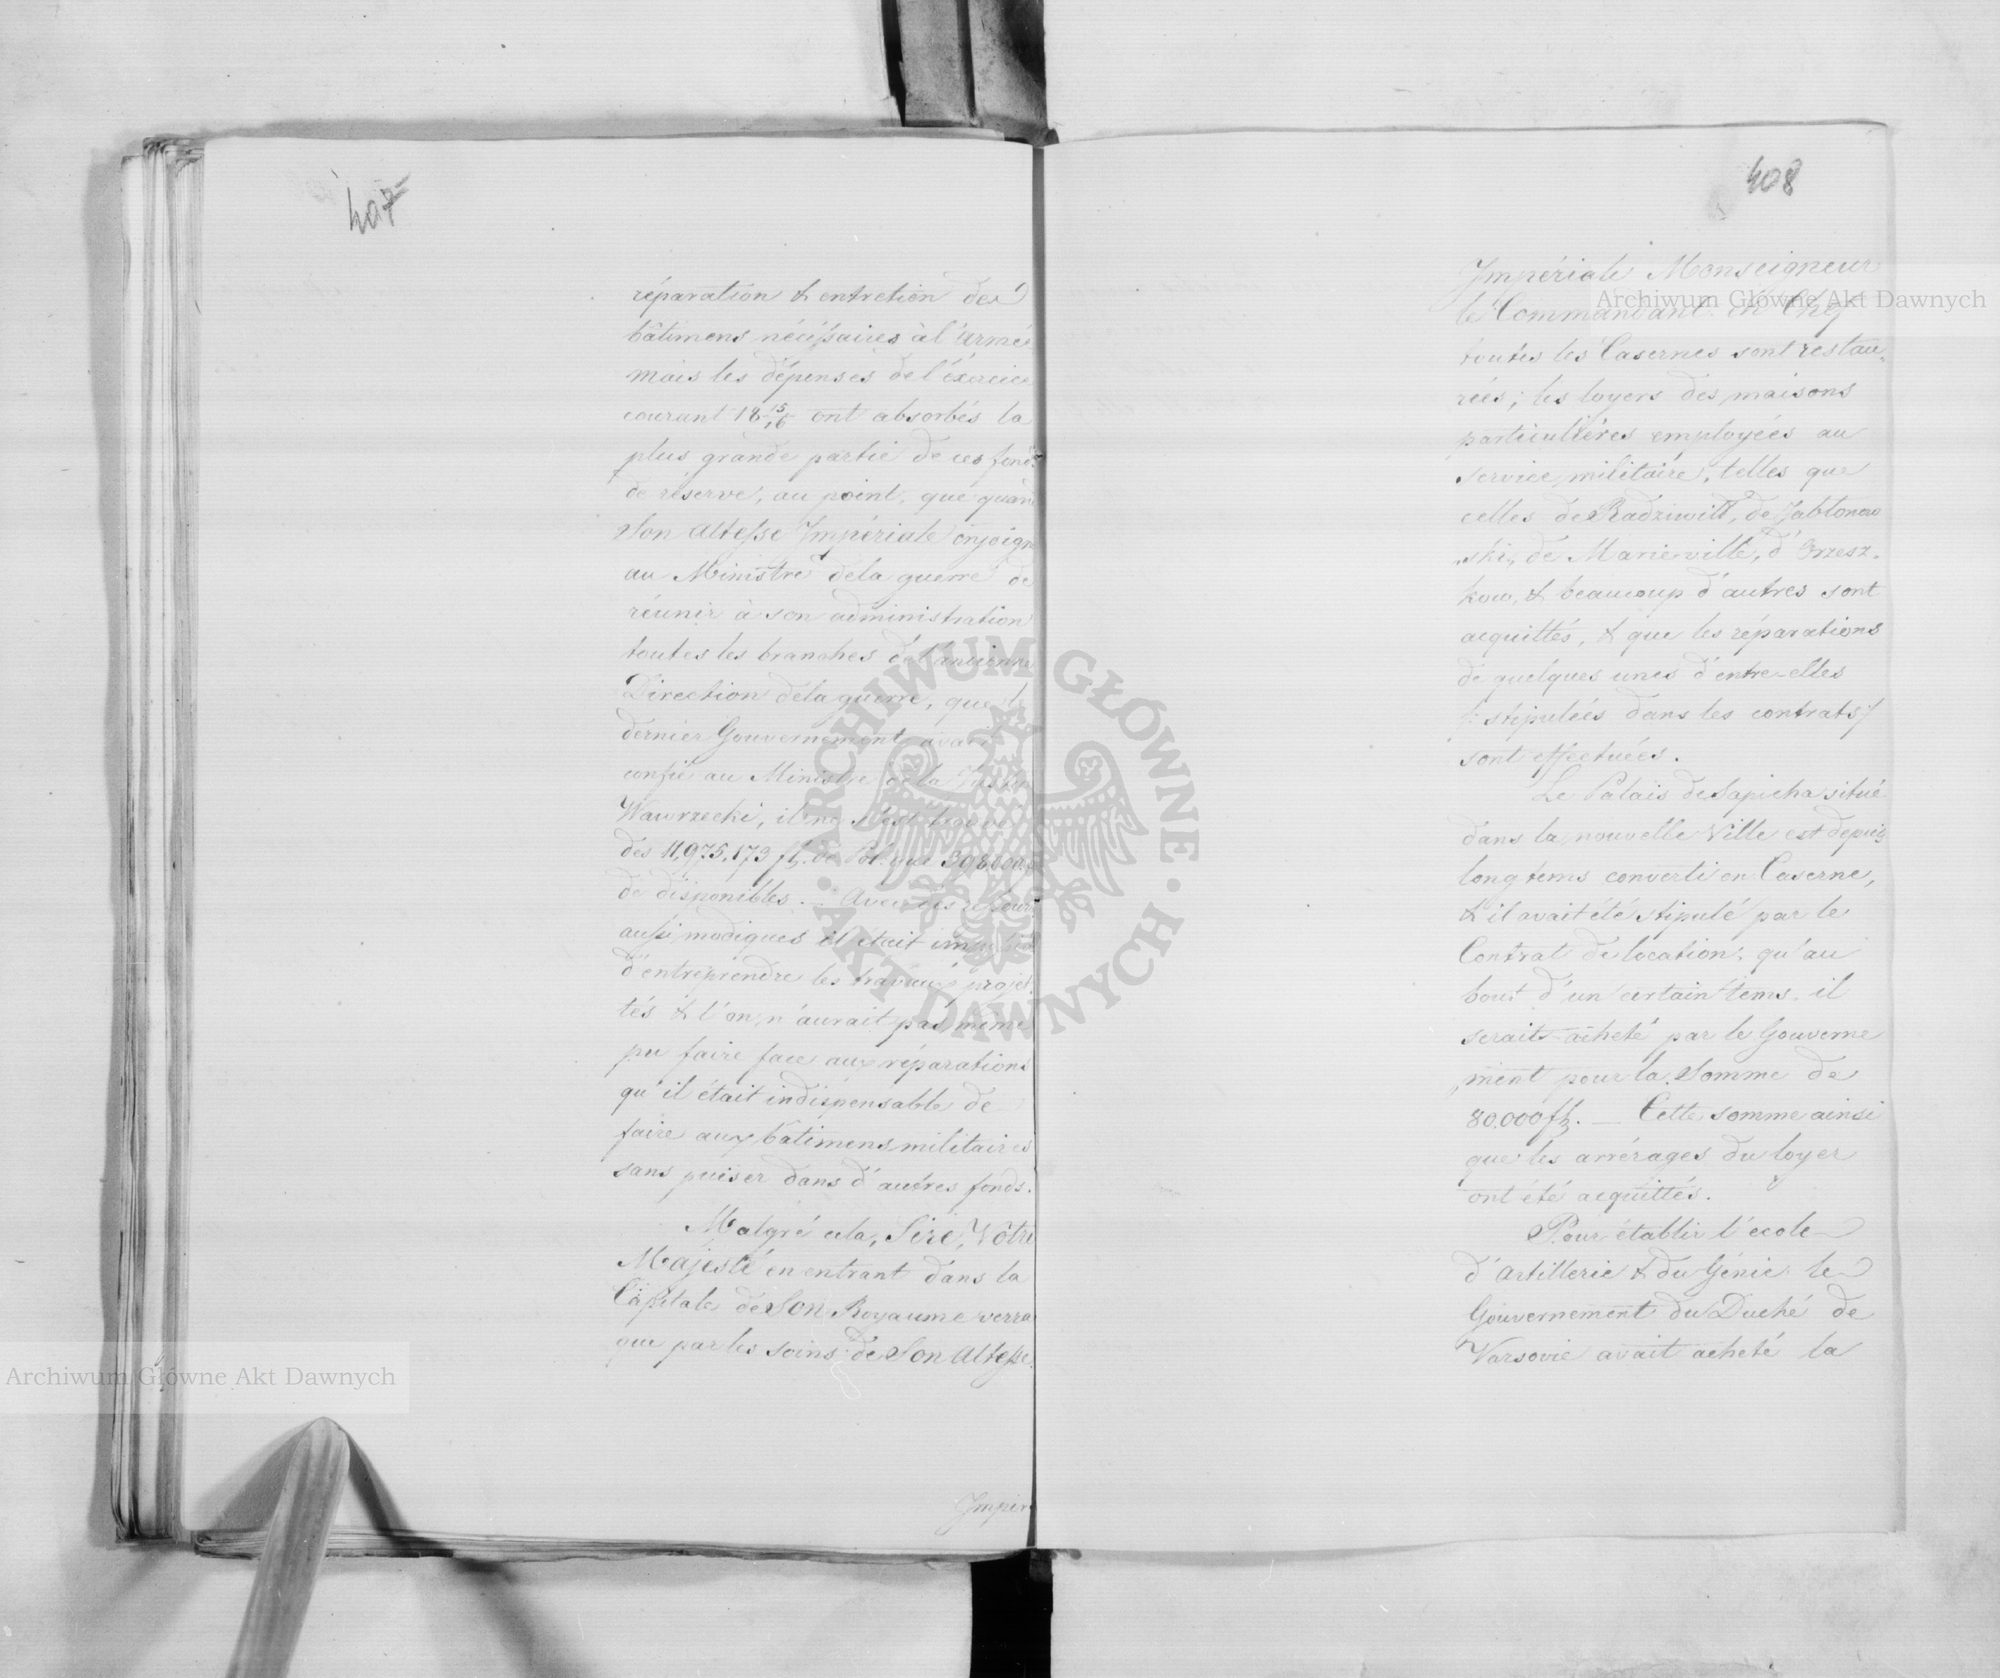 407
réparation & entretien des
bâtimens nécéssaires à l'armée
mais les dépenses de l'éxercice
courant 18 15/16 ont absorbés la
plus grande partie de ces fonds
de réserve, au point, que quand
Son Altesse Impériale enjoign
au Ministre de la guerre de
réunir à son administration
toutes les branches de l'ancienne
Direction de la guerre, que le
dernier Gouvernement avait
confié au Ministre de la Justice
Wawrzecki, il ne s'est trouvé
des 11,975,173 fl. de Pol. que 398,000
de disponibles. Avec des
aussi modiques il était impossi
d'entreprendre les travaux projet
tés & l'on n'aurait pas même
pu faire face aux réparations
qu'il était indispensable de
faire aux bâtimens militaires
sans puiser dans d'autres fonds.
Malgré cela, Sire, Vôtre
Majesté en entrant dans la
Capitale de Son Royaume verra
que par les soins de Son Altesse
Impér
408
Impériale Monseigneur
le Commandant en Chef
toutes les Casernes sont restau,
rées; les loyers des maisons
particulières employées au
service militaire, telles que
celles de Radziwill, de Jablonow
ski, de Marieville, d'Orzesz,
kow, & beaucoup d'autres sont
acquittés, & que les réparations
de quelques unes d'entre-elles
/: stipulées dans les contrats :/
sont effectuées.
Le Palais de Sapieha situé
dans la nouvelle Ville est depuis
longtems converti en Caserne,
& il avait été stipulé par le
Contrat de location, qu'au
bout d'un certain tems, il
serait acheté par le Gouverne
ment pour la Somme de
80,000 fl. — Cette somme ainsi
que les arrérages du loyer
ont été acquittés.
Pour établir l'école
d'Artillerie & du Génie le
Gouvernement du Duché de
Varsovie avait acheté la
Archiwum Główne Akt Dawnych
Archiwum Główne Akt Dawnych
ARCHIWUM GŁÓWNE
AKT DAWNYCH